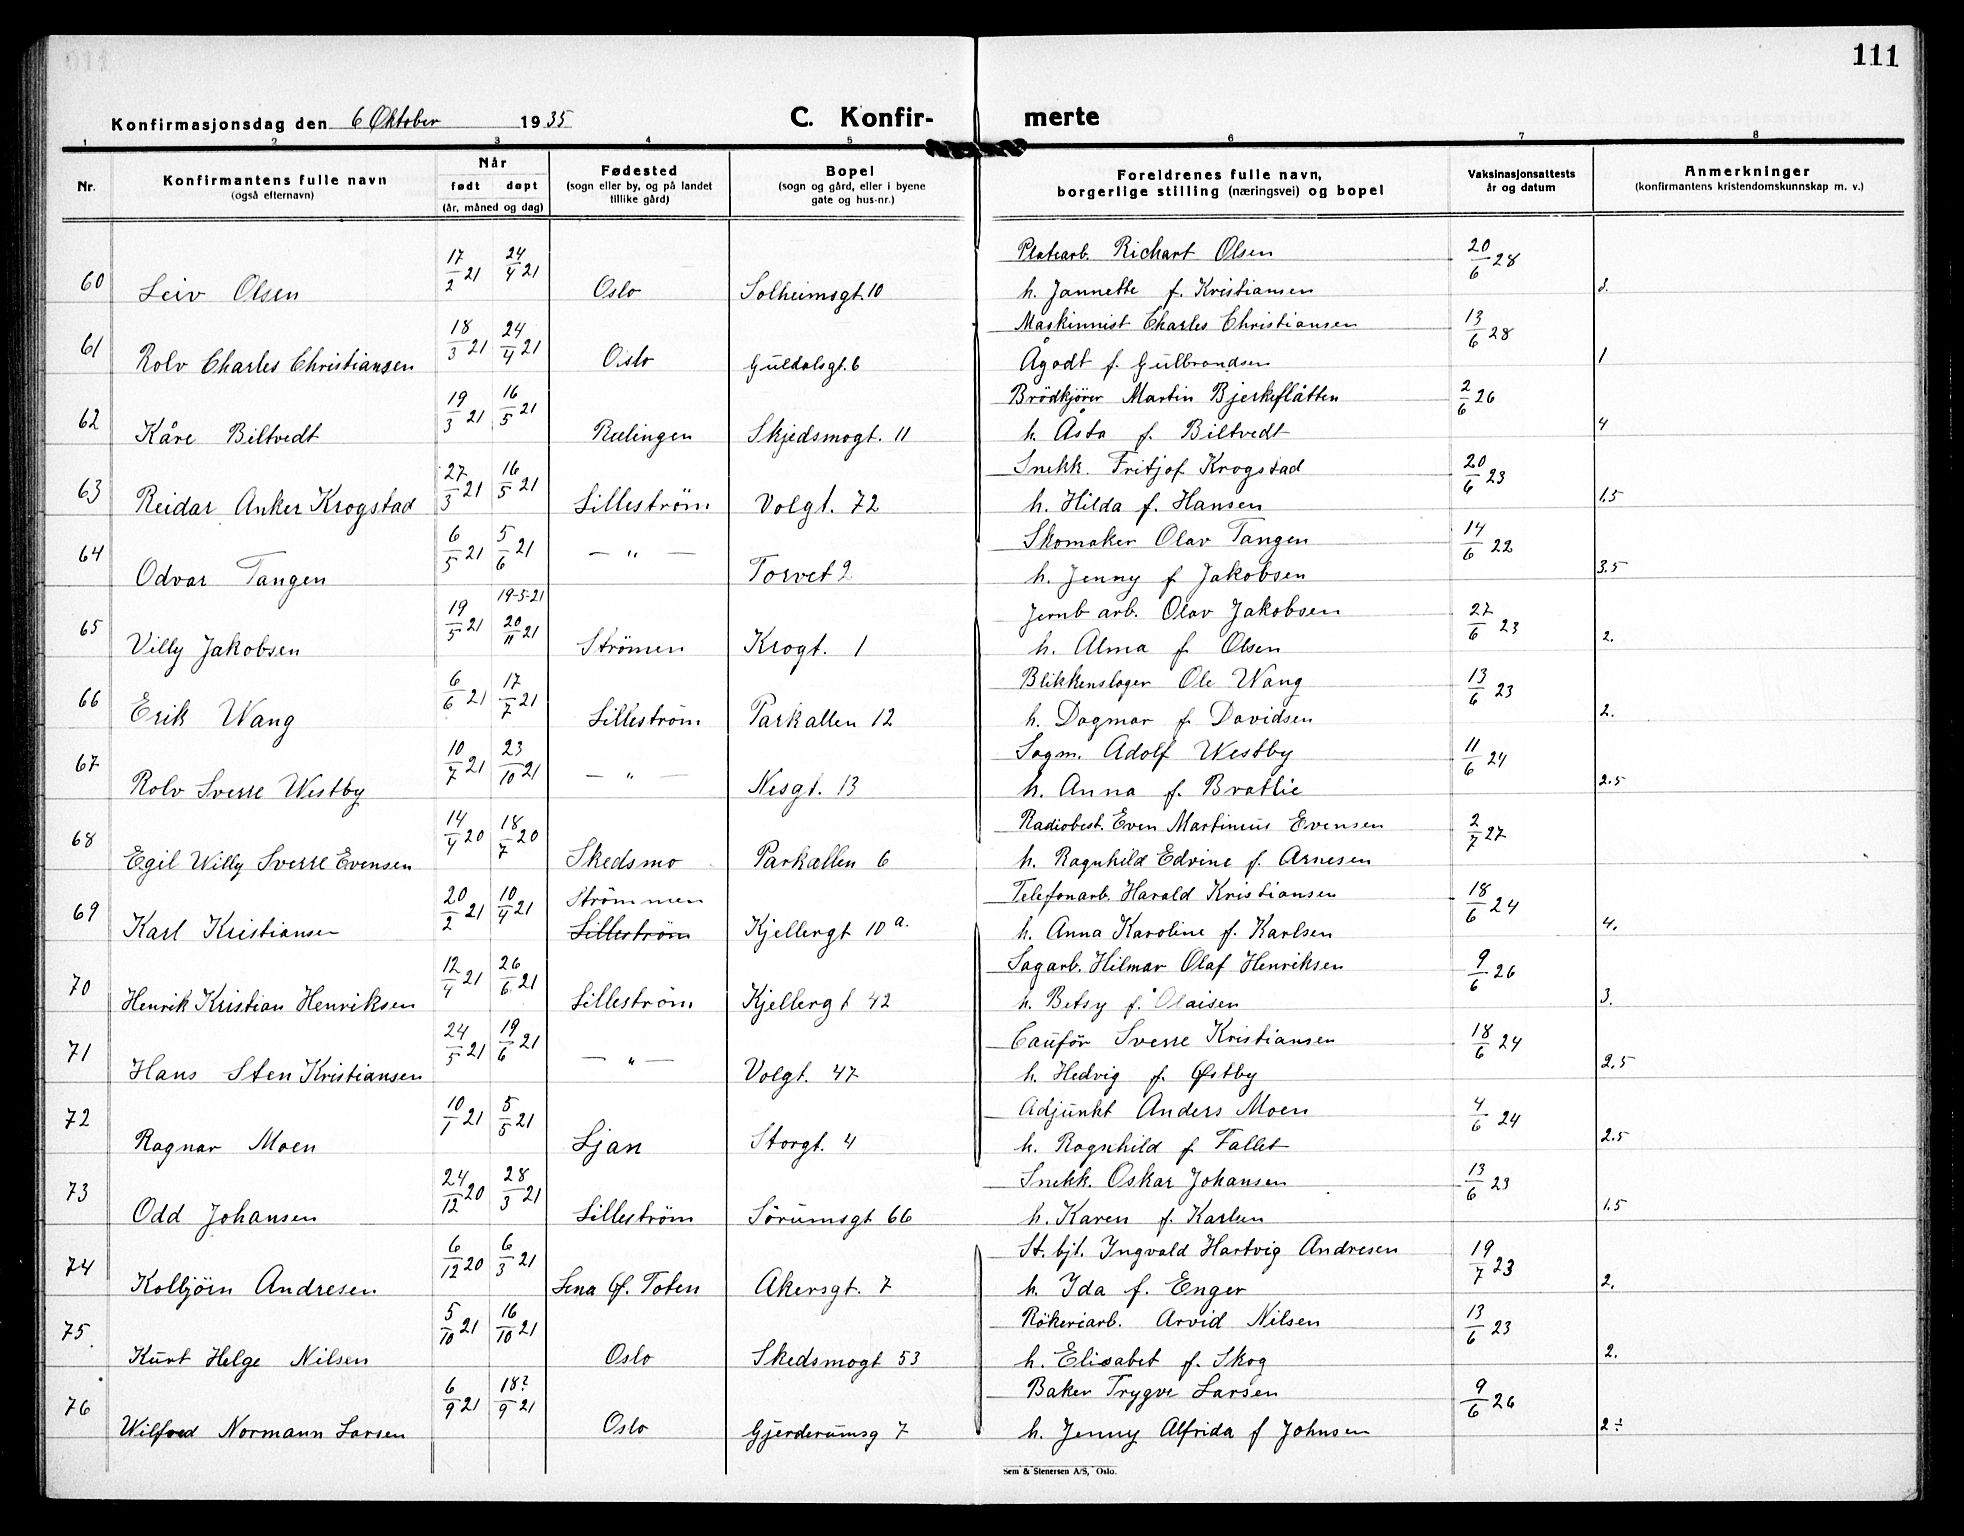 111
Konfirmasjonsdag den 6 Oktober 1935 C. Konfir- merte
1 2 3 4 5 6 7 8
Nr. Konfirmantens fulle navn (også efternavn) Når født døpt (år, måned og dag) Fødested (sogn eller by, og på landet tillike gård) Bopel (sogn og gård, eller i byene gate og hus-nr.) Foreldrenes fulle navn, borgerlige stilling (næringsvei) og bopel Vaksinasjonsattests år og datum Anmerkninger (konfirmantens kristendomskunnskap m. v.)
60 Leiv Olsen 17/2 21 24/4 21 Oslo Solheimsgt. 10 Platearb. Richart Olsen 20/6 28
h. Jannette f. Kristiansen 3.
61 Rolv Charles Christiansen 18/3 21 24/4 21 Oslo Guldalsgt. 6 Maskinnist Charles Christiansen 13/6 28
Ågodt f. Gulbrandsen 1
62 Kåre Biltvedt 19/3 21 16/5 21 Rælingen Skjedsmogt. 11 Brödkjörer Martin Bjerkeflåtten 2/6 26
h. Åsta f. Biltvedt 4
63 Reidar Anker Krogstad 27/3 21 16/5 21 Lilleström Volgt. 72 Snekk. Fritjof Krogstad 20/6 23
h. Hilda f. Hansen 1.5
64 Odvar Tangen 6/5 21 5/6 21 — " — Torvet 2 Skomaker Olav Tangen 14/6 22
h. Jenny f Jakobsen 3.5
65 Villy Jakobsen 19/5 21 19-5-21 20/11 21 Strömen Krogt. 1 Jernb arb. Olav Jakobsen 27/6 23
h. Alma f. Olsen 2.
66 Erik Wang 6/6 21 17/7 21 Lilleström Parkallen 12 Blikkenslager Ole Wang 13/6 23
h. Dagmar f. Davidsen 2.
67 Rolv Sverre Westby 10/7 21 23/10 21 — " — Nesgt. 13 Sagm. Adolf Westby 11/6 24
h. Anna f. Bratlie 2.5
68 Egil Willy Sverre Evensen 14/4 20 18/7 20 Skedsmo Parkallen 6 Radiobest. Even Martinius Evensen 2/7 27
h. Ragnhild Edvine f. Arnesen
69 Karl Kristiansen 20/2 21 10/4 21 Strömmen Lilleström Kjellergt 10 a. Telefonarb. Harald Kristiansen 18/6 24
h. Anna Karoline f. Karlsen 4.
70 Henrik Kristian Henriksen 12/4 21 26/6 21 Lilleström Kjellergt 42 Sagarb. Hilmar Olaf Henriksen 9/6 26
h. Betsy f. Olaisen 3.
71 Hans Sten Kristiansen 24/5 21 19/6 21 — " — Volgt. 47 Cauför Sverre Kristiansen 18/6 24
h. Hedvig f. Østby 2.5
72 Ragnar Moen 10/1 21 5/5 21 Ljan Storgt. 4 Adjunkt Anders Moen 4/6 24
h. Ragnhild f. Fallet 2.5
73 Odd Johansen 24/12 20 28/3 21 Lilleström Sörumsgt 66 Snekk. Oskar Johansen 13/6 23
h. Karen f. Karlsen 1.5
74 Kolbjörn Andresen 6/12 20 6/3 21 Lena Ø. Toten Akersgt. 7 St. bjt. Ingvald Hartvig Andresen 19/7 23
h. Ida f. Enger 2.
75 Kurt Helge Nilsen 5/10 21 16/10 21 Oslo Skedsmogt 53 Rökeriarb. Arvid Nilsen 13/6 23
h. Elisabet f. Skog 2.
76 Wilfred Normann Larsen 6/9 21 18?/9 21 Oslo Gjerderumsg 7 Baker Trygve Larsen 9/6 26
h. Jenny Alfrida f Johnsen 2÷
Sem & Stenersen A/S, Oslo.